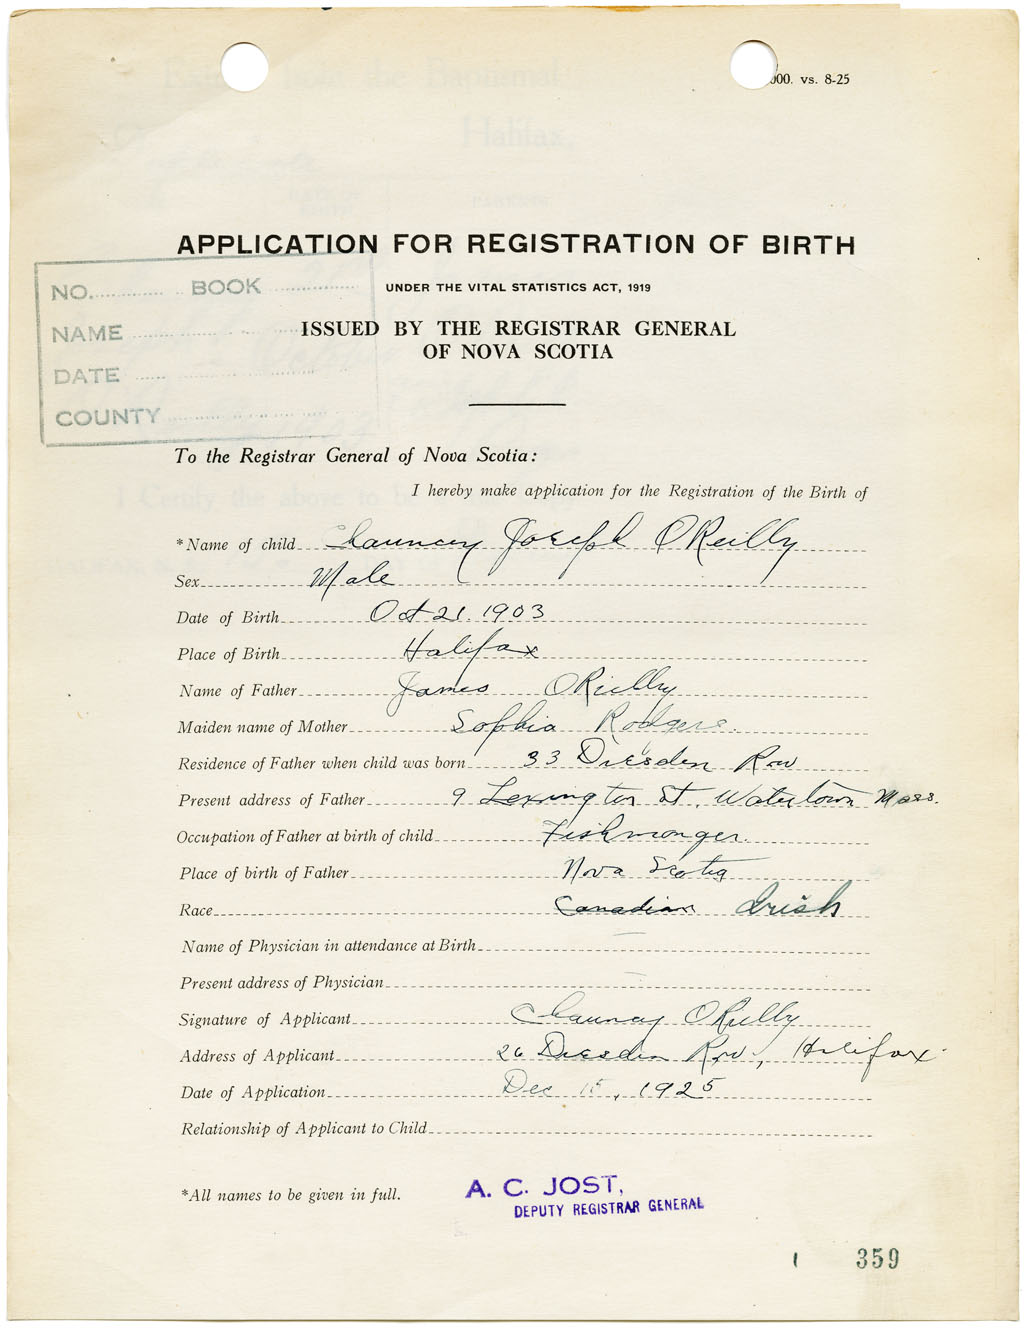 000. vs. 8-25
APPLICATION FOR REGISTRATION OF BIRTH
UNDER THE VITAL STATISTICS ACT, 1919
ISSUED BY THE REGISTRAR GENERAL
OF NOVA SCOTIA
NO. BOOK
NAME
DATE
COUNTY
To the Registrar General of Nova Scotia:
I hereby make application for the Registration of the Birth of
*Name of child Chauncey Joseph O'Reilly
Sex Male
Date of Birth Oct 21. 1903
Place of Birth Halifax
Name of Father James O'Rielly
Maiden name of Mother Sophia Rodgers.
Residence of Father when child was born 33 Dresden Row
Present address of Father 9 Lexington St. Watertown Mass.
Occupation of Father at birth of child Fishmonger.
Place of birth of Father Nova Scotia
Race Canadian Irish
Name of Physician in attendance at Birth
Present address of Physician
Signature of Applicant Chauncey O'Rielly
Address of Applicant 26 Dresden Row, Halifax
Date of Application Dec 15, 1925
Relationship of Applicant to Child
*All names to be given in full.
A. C. JOST,
DEPUTY REGISTRAR GENERAL
359